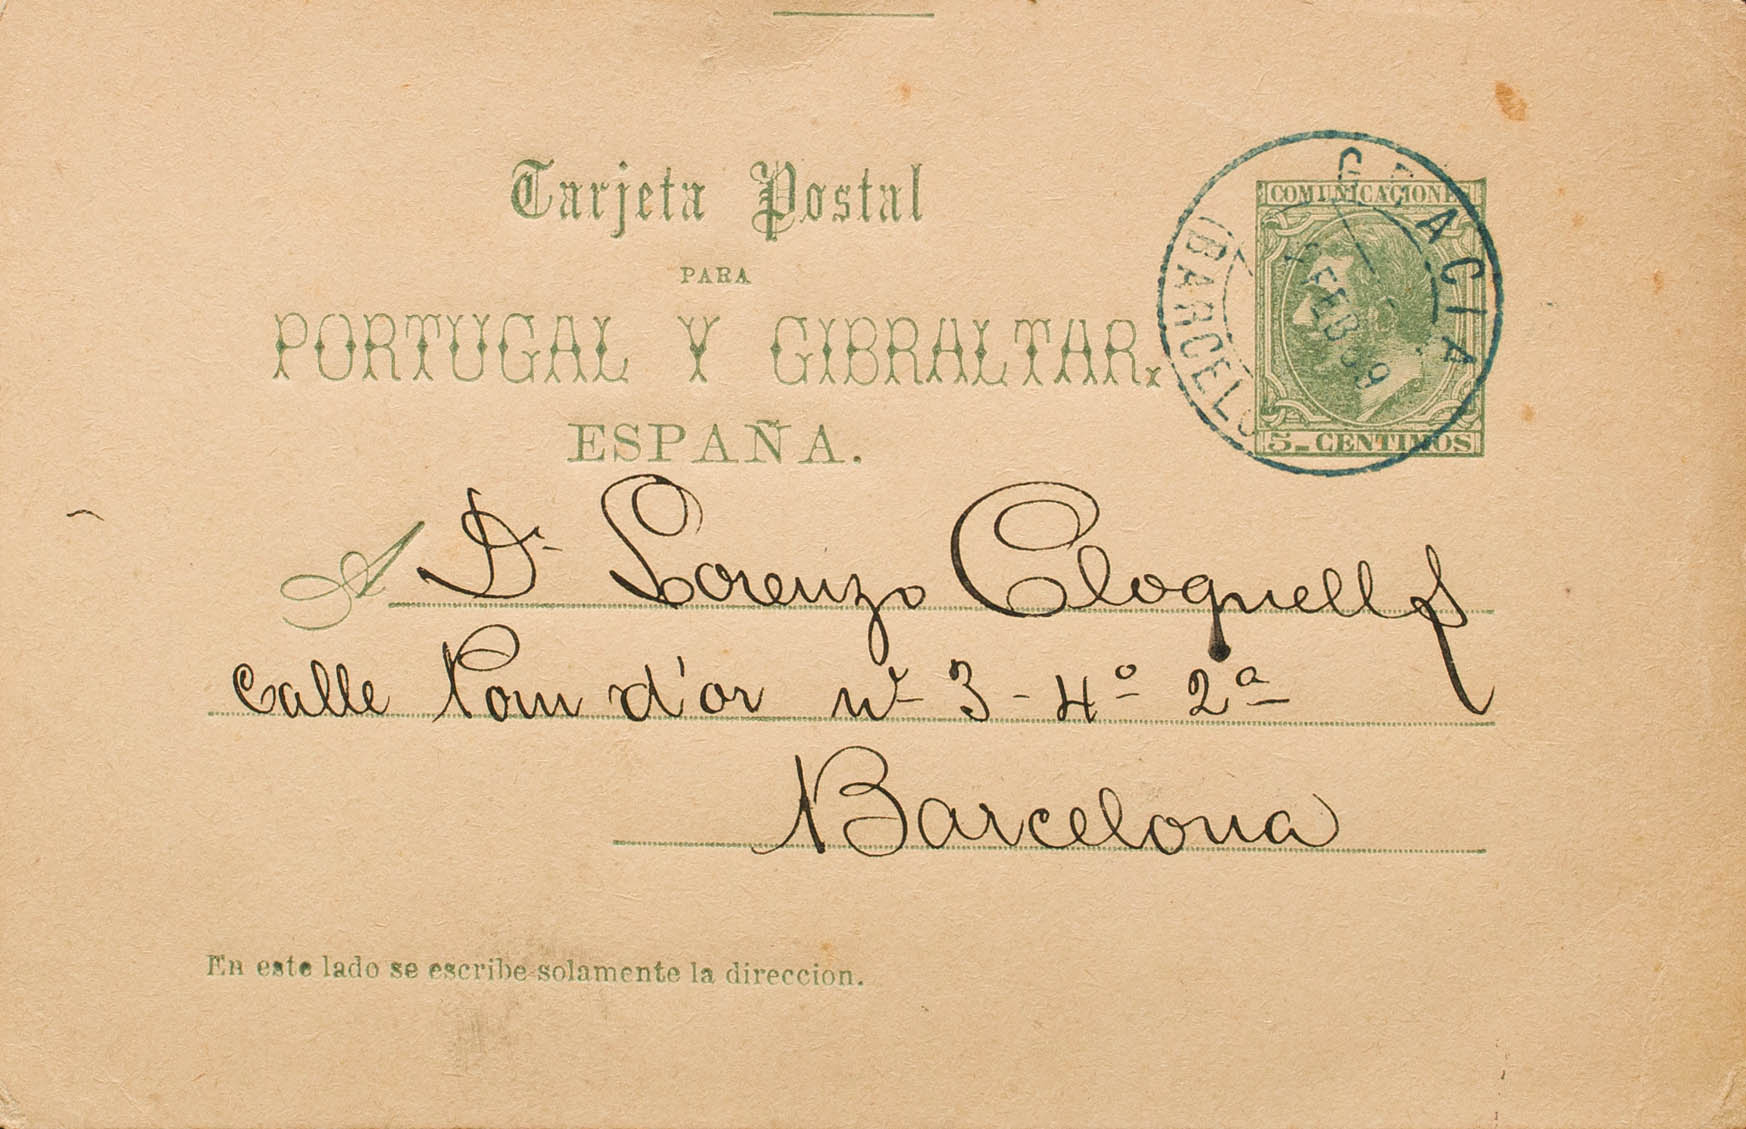 Tarjeta Postal
PARA
PORTUGAL Y GIBRALTAR.
ESPAÑA.
COMUNICACIONES
5 CENTIMOS
GRACIA
(BARCELO
FEB 89
A Dn Lorenzo Cloquell
Calle Pom d'or nº 3 - 4º 2ª
Barcelona
En este lado se escribe solamente la direccion.